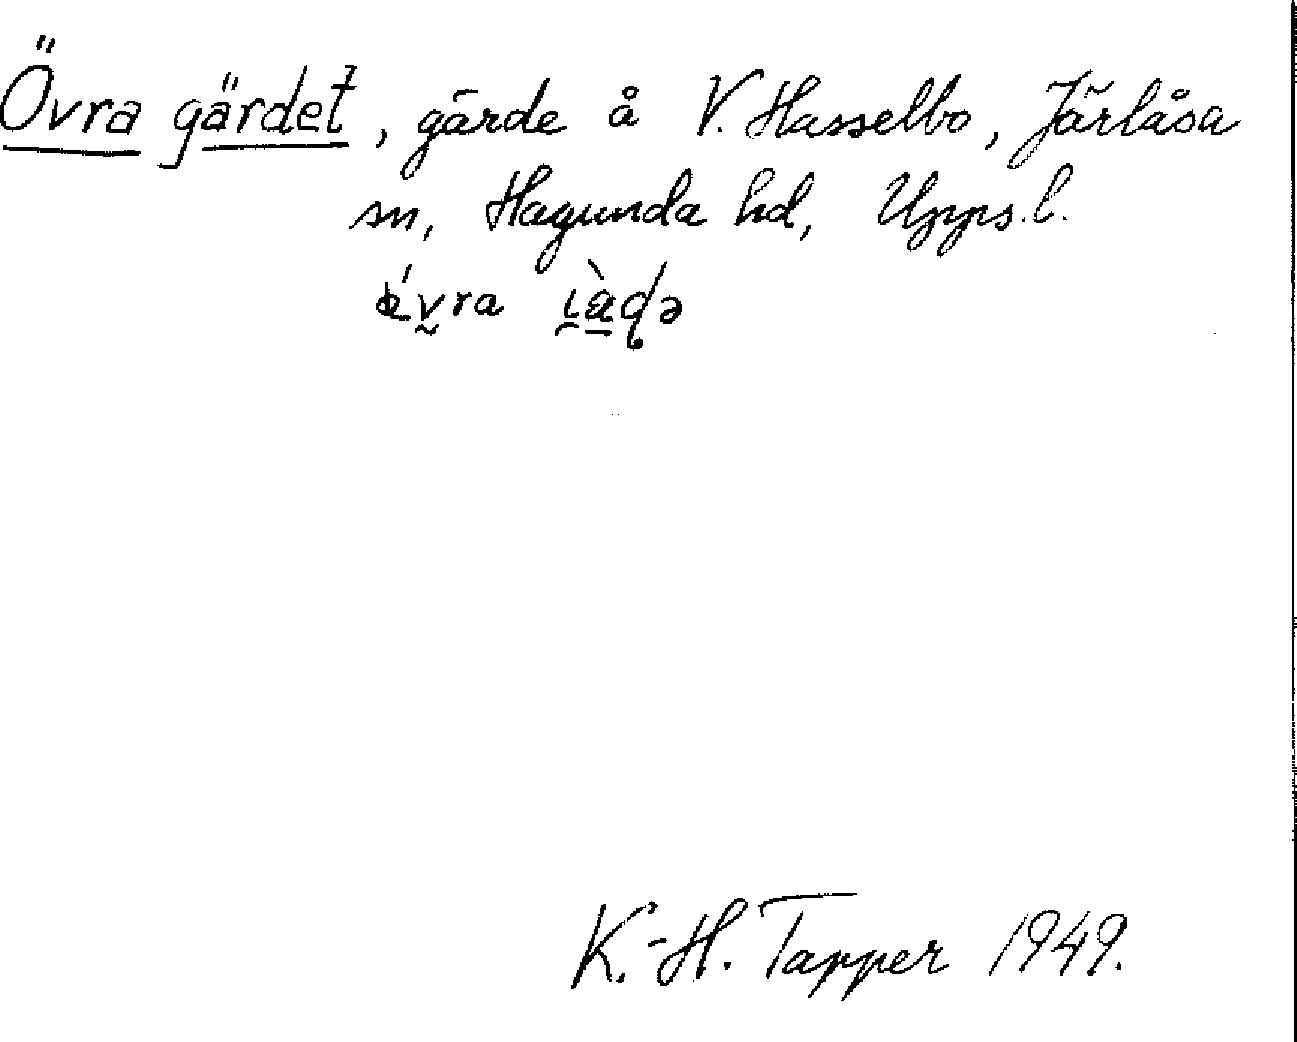 Övra gärdet, gärde å V. Hasselbo, Järlåsa
sn, Hagunda hd, Upps. l.
K.-H. Tapper 1949.